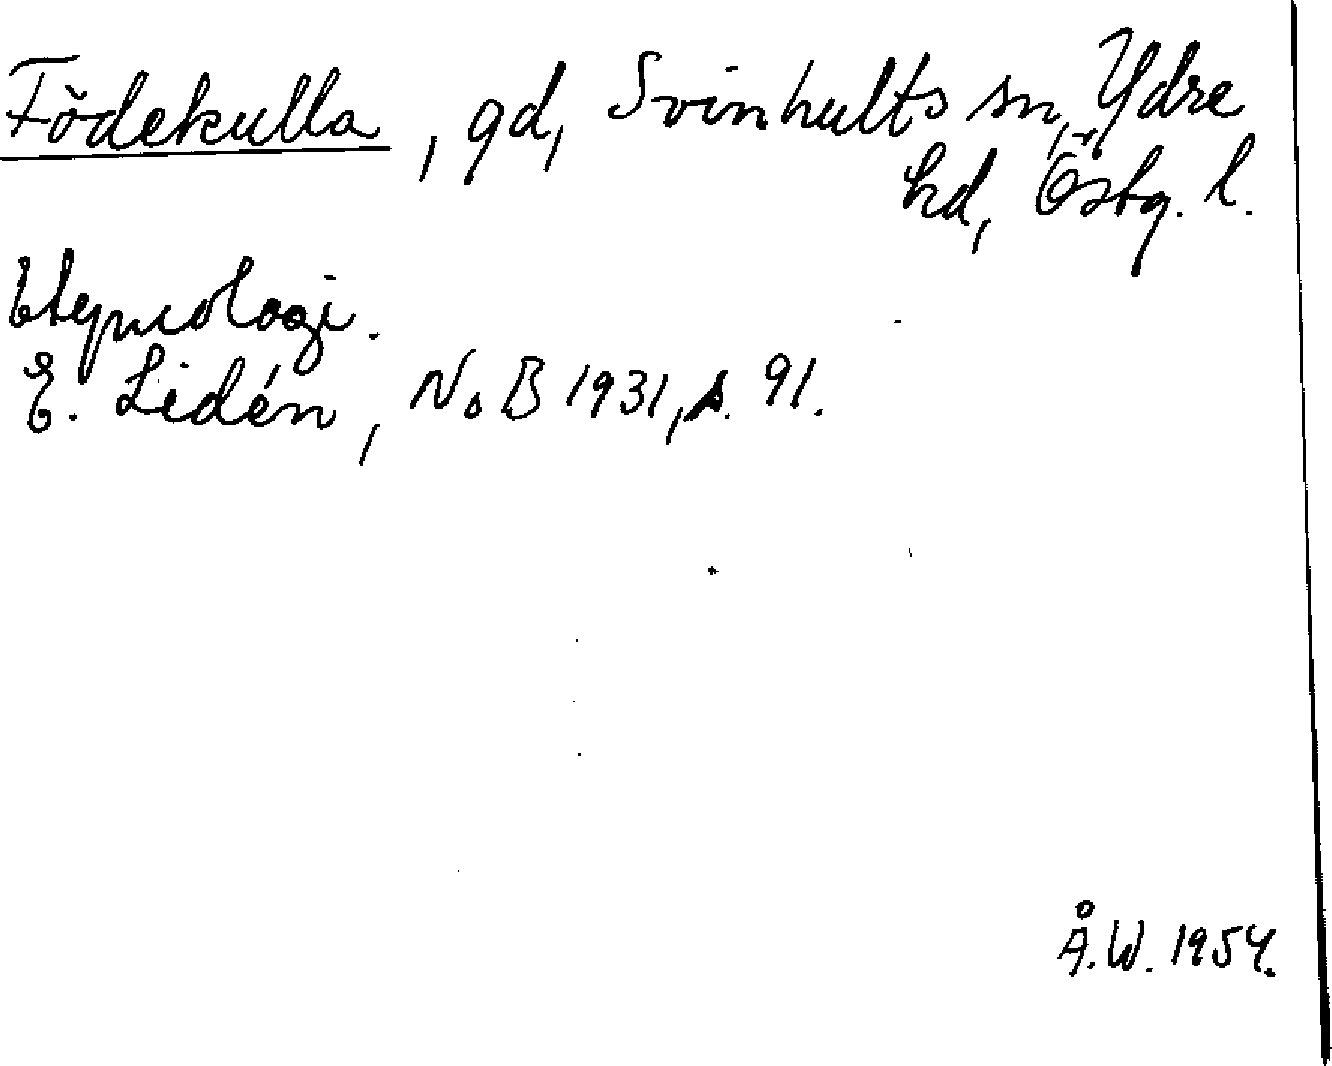 Födekulla, gd, Svinhults sn, Ydre
hd, Östg. l.
Etymologi.
E. Lidén, NoB 1931, s. 91.
Å.W. 1954.